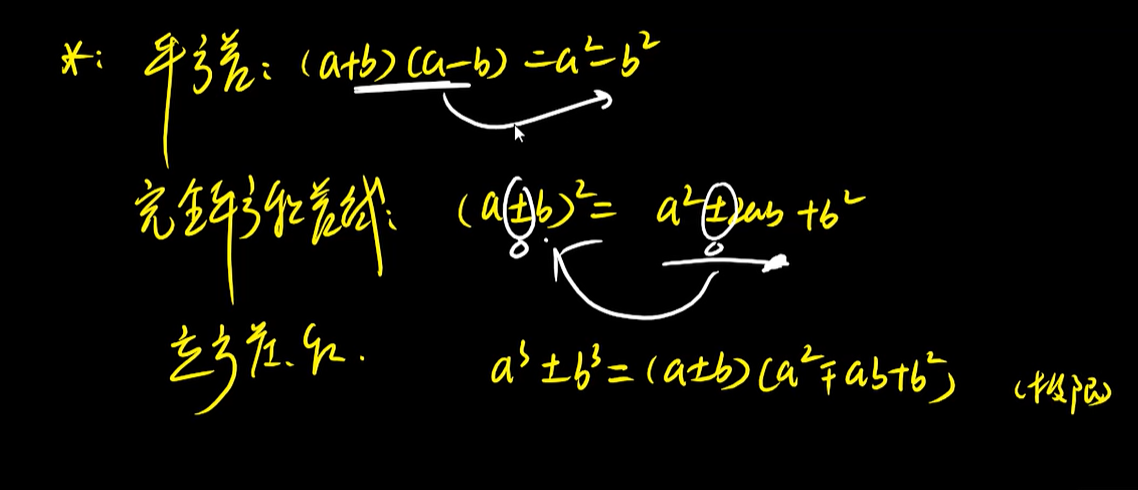 *: 平方差: (a+b)(a-b) = a² - b²
完全平方和差公式: (a±b)² = a² ± 2ab + b²
立方差、和. a³ ± b³ = (a±b)(a² ∓ ab + b²) (极限)